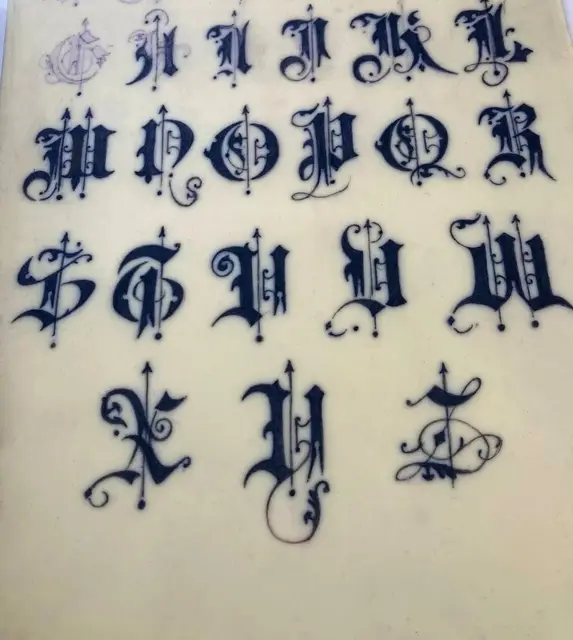 G H I J K L
M N O P Q R
S T U V W
X Y Z